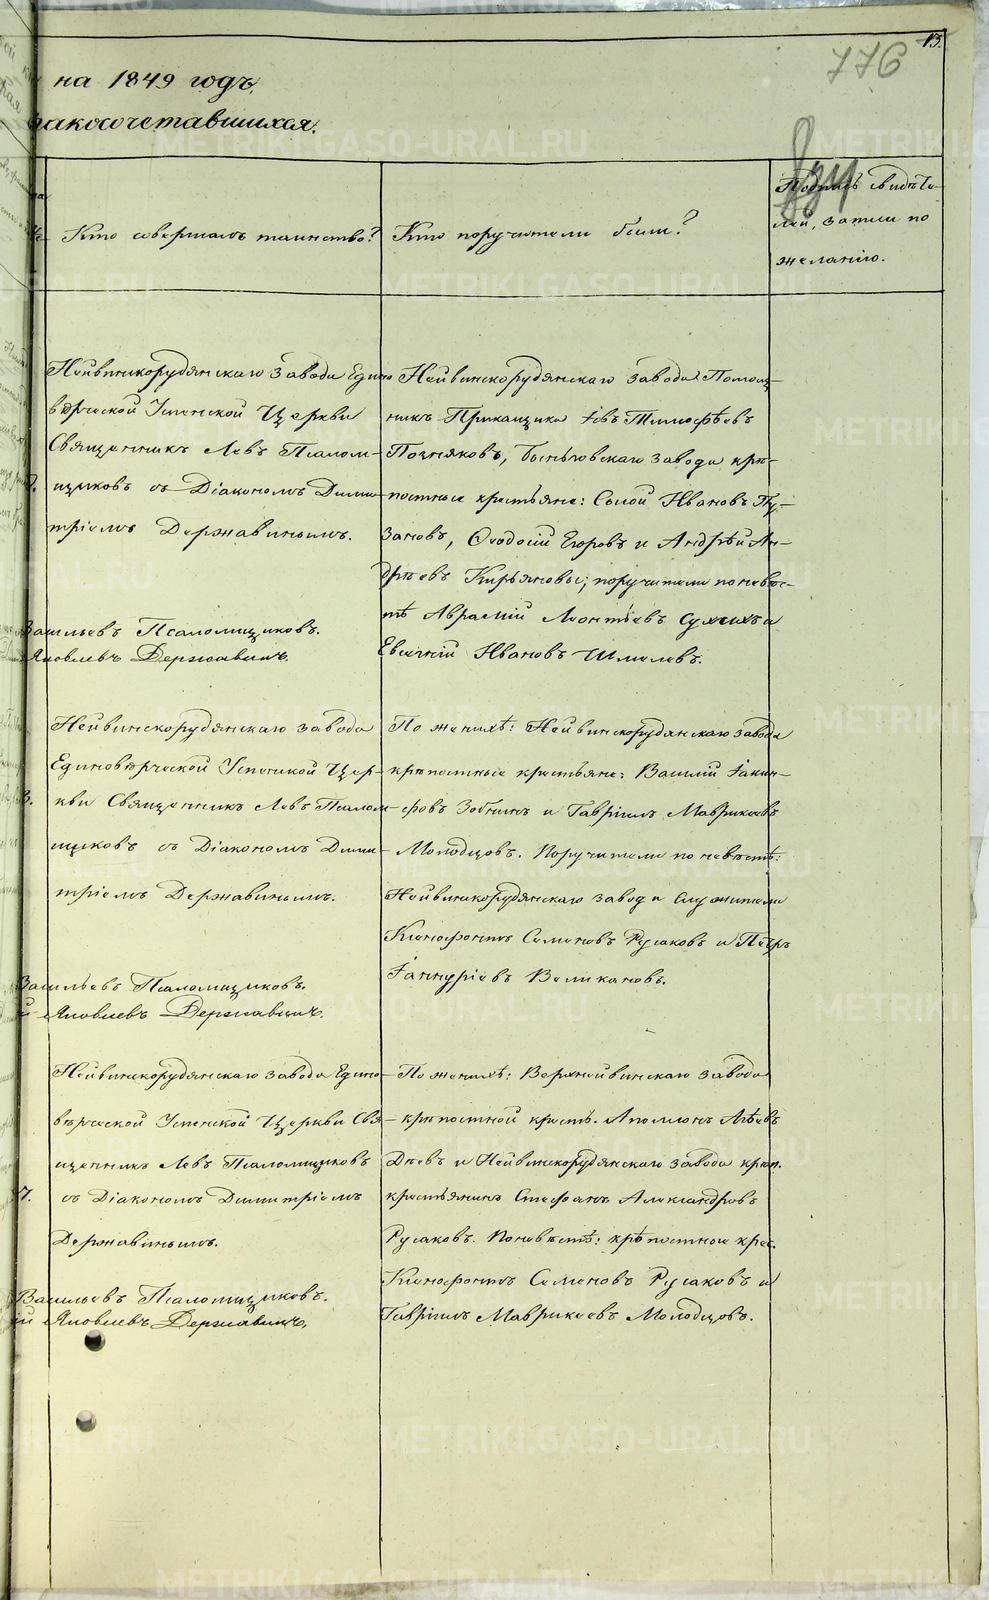 13.
776
на 1849 годъ,
бракосочетавшихся.
Кто совершалъ таинство?
Кто поручители были?
Подпись свидѣте-
лей, записи по
желанію.
Нейвинскорудянскаго завода Едино
вѣрческой Успенской Церкви
Священникъ Левъ Псалом-
щиковъ съ Діакономъ Дими-
тріемъ Державинымъ.
Васильевъ Псаломщиковъ.
Яковлевъ Державинъ.
Нейвинскорудянскаго завода Помощ-
никъ Прикащика Іовъ Тимофѣевъ
Позняковъ, Быньговскаго завода крѣ-
постные крестьяне: Сысой Ивановъ Пу-
зановъ, Ѳеодосій Егоровъ и Андрѣй Ан-
дреевъ Кирьяновы; поручители по невѣс-
тѣ Авраамій Леонтьевъ Сухихъ и
Евгеній Ивановъ Шмелевъ.
Нейвинскорудянскаго завода
Единовѣрческой Успенской Цер-
кви Священникъ Левъ Псалом-
щиковъ съ Діакономъ Дими-
тріемъ Державинымъ.
Васильевъ Псаломщиковъ.
й Яковлевъ Державинъ.
По женихѣ: Нейвинскорудянскаго завода
крѣпостные крестьяне: Василій Іакин-
фовъ Зобнинъ и Гавріилъ Маврикеевъ
Молодцовъ. Поручители по невѣстѣ:
Нейвинскорудянскаго завода служители
Ксенофонтъ Семеновъ Русаковъ и Петръ
Іаннуріевъ Великановъ.
Нейвинскорудянскаго завода Едино-
вѣрческой Успенской Церкви Свя-
щенникъ Левъ Псаломщиковъ
съ Діакономъ Димитріемъ
Державинымъ.
Васильевъ Псаломщиковъ.
ій Яковлевъ Державинъ.
По женихѣ: Верхнейвинскаго завода
крѣпостной крестъ. Аполлонъ
Дѣевъ и Нейвинскорудянскаго завода крѣп.
крестьянинъ Стефанъ Александровъ
Русаковъ. По невѣстѣ: крѣпостные крес.
Ксенофонтъ Семеновъ Русаковъ и
Гавріилъ Маврикеевъ Молодцовъ.
METRIKI.GASO-URAL.RU